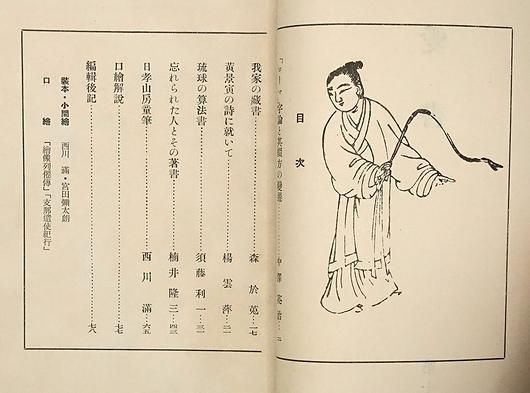 目次
「ローマ」字論と其綴方の變遷……中澤英治…二
我家の藏書……森於菟…一七
黃景寅の詩に就いて……楊雲萍…二一
琉球の算法書……須藤利一…三一
忘れられた人とその著書……楠井隆三…四三
日孝山房童筆……西川滿…六五
口繪解說……七七
編輯後記……七八
裝本・小間繪 西川滿・宮田彌太朗
口繪 「繪像列僊傳」「支那遣使紀行」